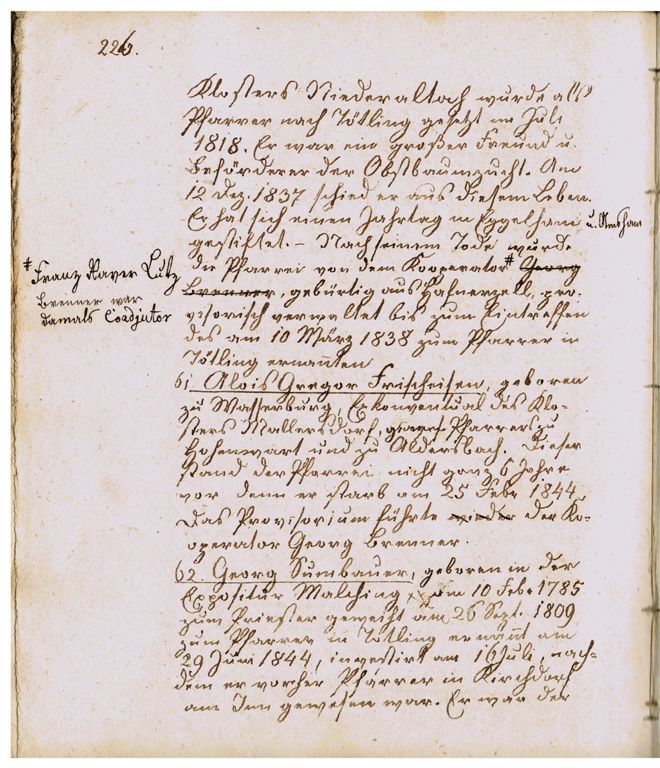 226.
Klosters Niederaltach wurde als
Pfarrer nach Tötling gesetzt im Juli
1818. Er war ein großer Freund u.
Beförderer der Obstbaumzucht. Am
12 Dez. 1837 schied er aus diesem Leben.
Er hat sich einen Jahrtag in Eggelham u. Amsham
gestiftet. – Nach seinem Tode wurde
die Pfarrei von dem Kooperator # Georg
Brenner, gebürtig aus Hafnerzell, pro-
visorisch verwaltet bis zum Eintreffen
des am 10 März 1838 zum Pfarrer in
Tötling ernannten
# Franz Xaver Lutz
Brenner war
damals Coadjutor
61. Alois Gregor Frischeisen, geboren
zu Wasserburg, Exkonventual des Klo-
sters Mallersdorf, Pfarrers zu
Hohenwart und zu Aldersbach. Dieser
stand der Pfarrei nicht ganz 6 Jahre
vor denn er starb am 25 Febr 1844
Das Provisorium führte wieder der Ko-
operator Georg Brenner.
62. Georg Sumbauer, geboren in der
Expositur Malching am 10 Febr 1785
zum Priester geweiht am 26 Sept. 1809
zum Pfarrer in Tötling ernannt am
29 Juni 1844, investirt am 16 Juli, nach-
dem er vorher Pfarrer in Kirchdorf
am Inn gewesen war. Er war der